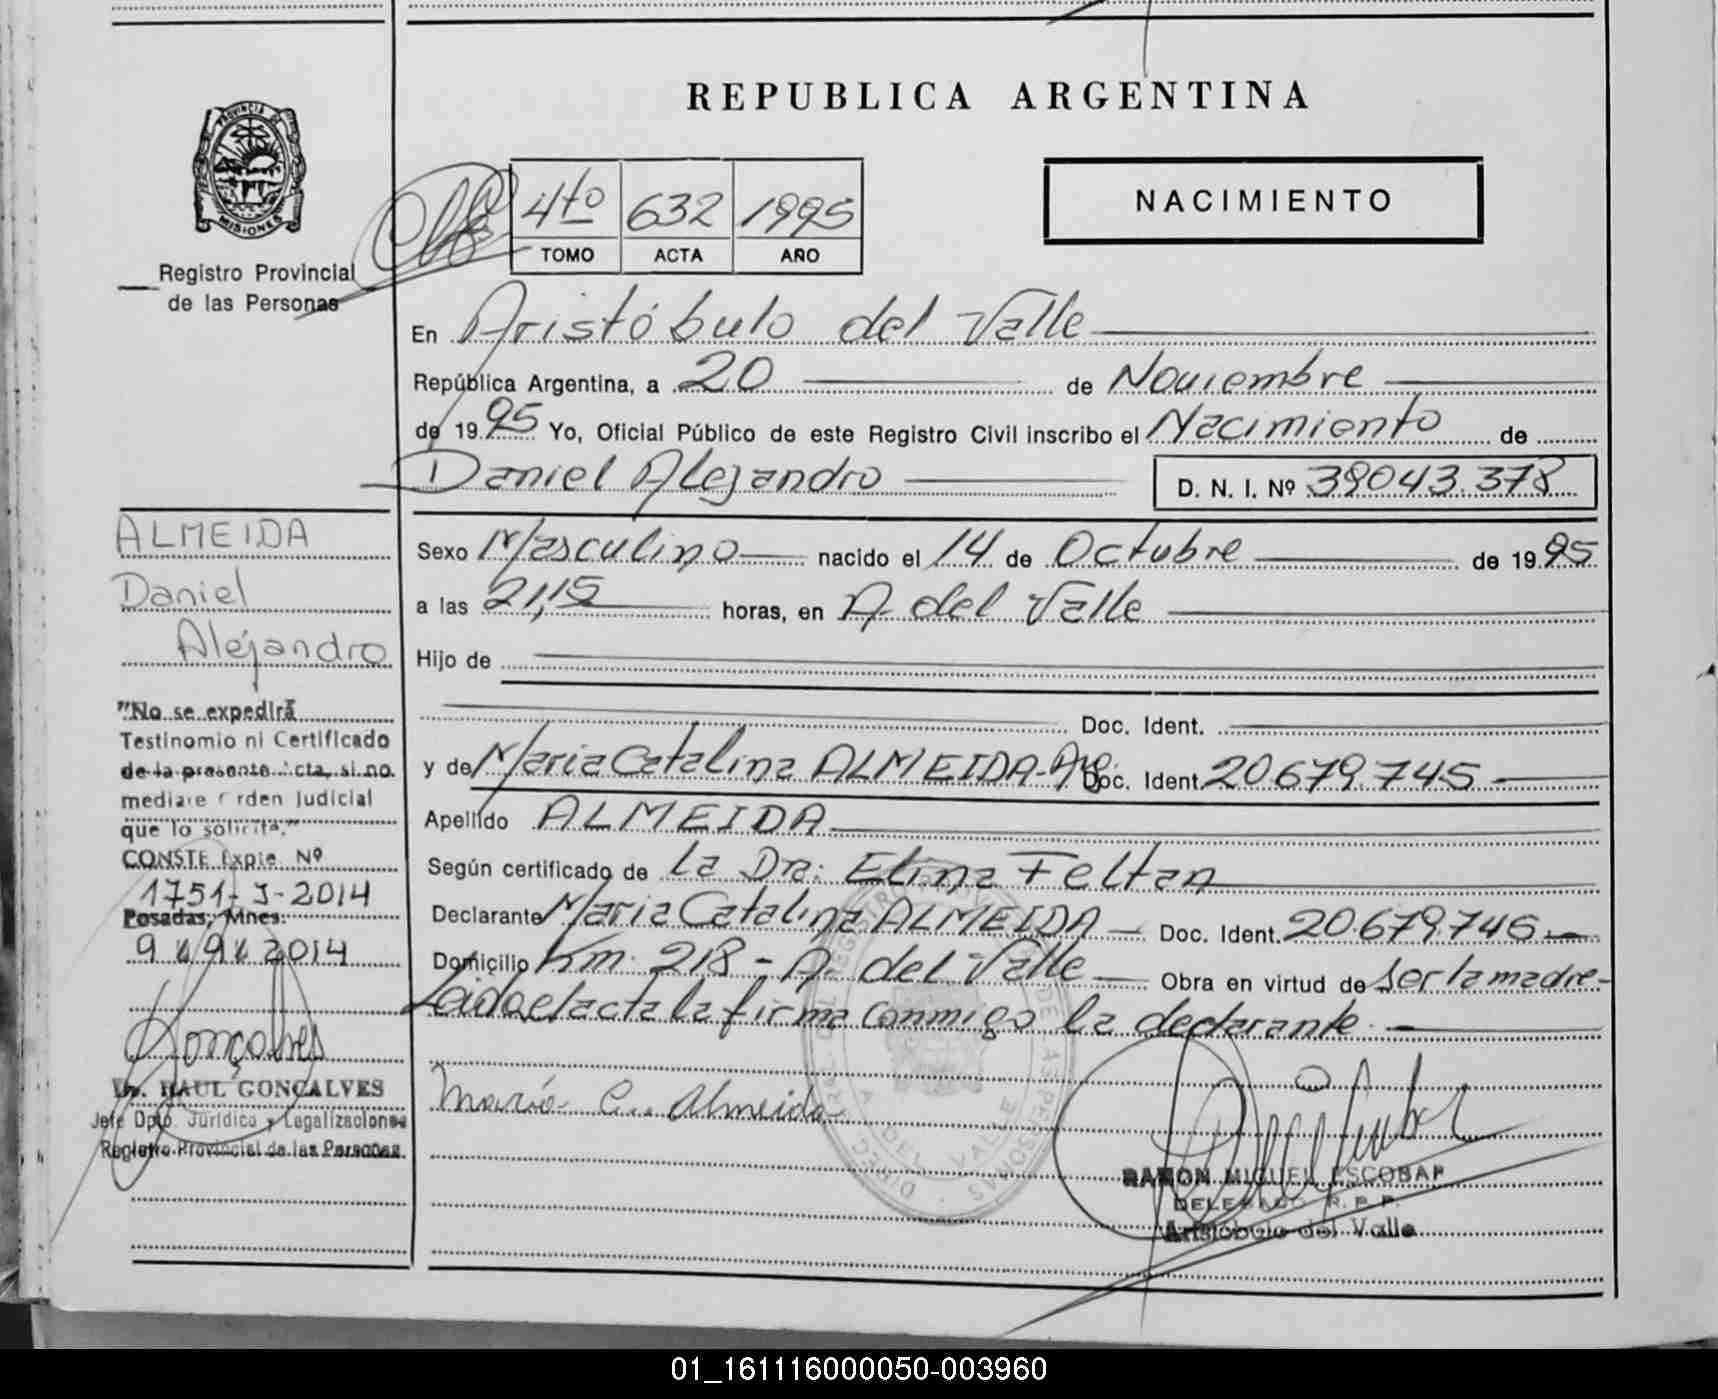 REPUBLICA ARGENTINA
PROVINCIA DE
MISIONES
Registro Provincial
de las Personas
4to 632 1995
TOMO ACTA AÑO
NACIMIENTO
En Aristóbulo del Valle
República Argentina, a 20 de Noviembre
de 1995 Yo, Oficial Público de este Registro Civil inscribo el Nacimiento de
Daniel Alejandro D. N. I. Nº 39043.378
Sexo Masculino nacido el 14 de Octubre de 1995
a las 21,15 horas, en A. del Valle
Hijo de
Doc. Ident.
y de Maria Catalina ALMEIDA-Arg. Doc. Ident. 20.679.745
Apellido ALMEIDA
Según certificado de la Dra. Elina Feltan
Declarante Maria Catalina ALMEIDA Doc. Ident. 20.679.745
Domicilio Km. 218 - A. del Valle Obra en virtud de ser la madre-
Leida el acta la firma conmigo la declarante.
Maria C. Almeida
RAMON MIGUEL ESCOBAR
DELEGADO R. P. P.
Aristóbulo del Valle
ALMEIDA
Daniel
Alejandro
"No se expedirá
Testinomio ni Certificado
de la presente Acta, si no
mediare Orden Judicial
que lo solicite."
CONSTE Expte. Nº
1751-J-2014
Posadas, Mnes.
9 2014
Gonçalves
Dr. RAUL GONCALVES
Jefe Dpto. Jurídico y Legalizaciones
Registro Provincial de las Personas
01_161116000050-003960